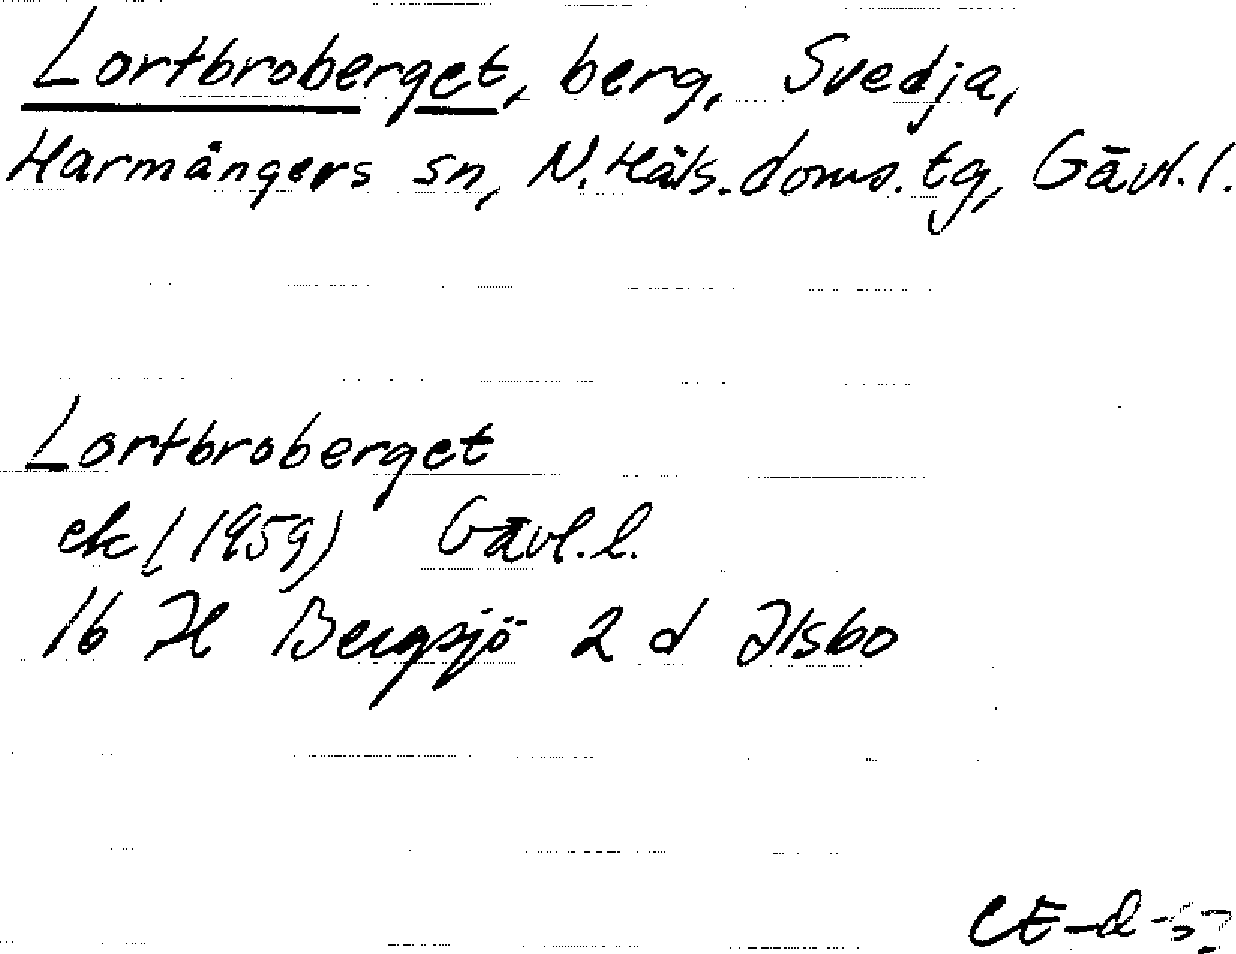 Lortbroberget, berg, Svedja,
Harmångers sn, N. Häls. doms. tg, Gävl. l.
Lortbroberget
ek (1959) Gävl. l.
16 H Bergsjö 2 d Ilsbo